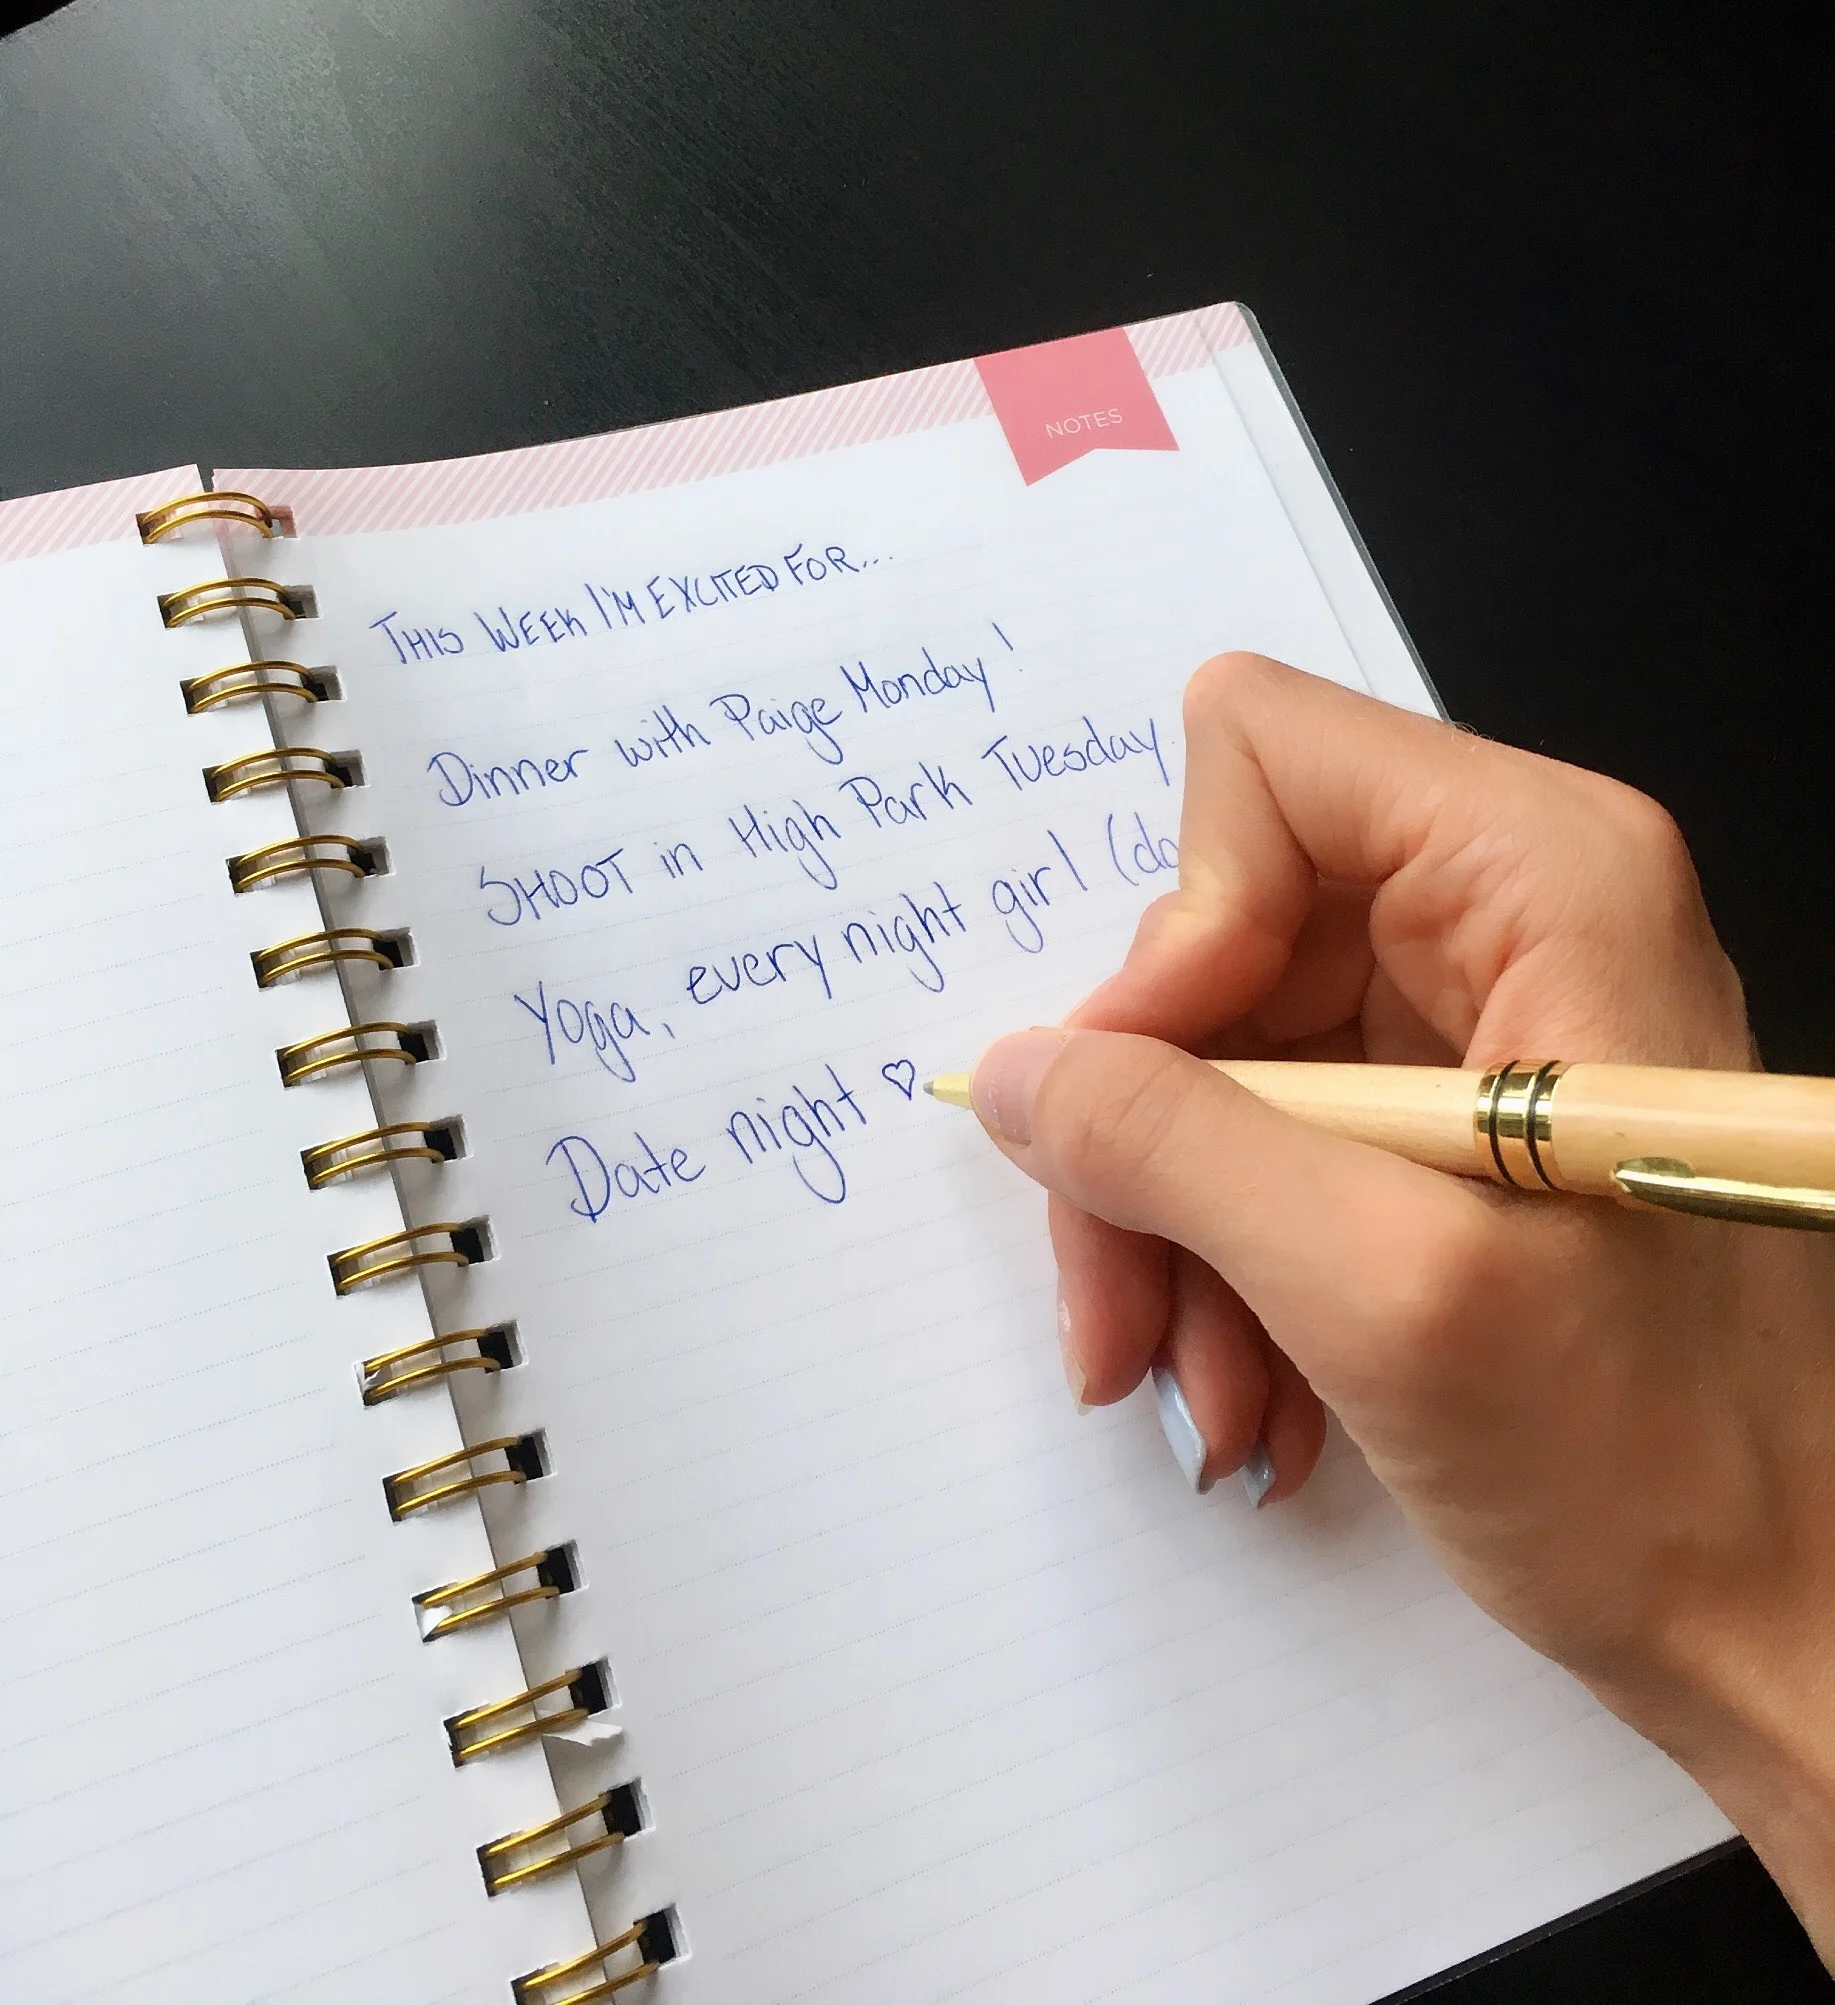 NOTES
THIS WEEK I'M EXCITED FOR...
Dinner with Paige Monday!
SHOOT in High Park Tuesday
Yoga, every night girl (do
Date night ♡